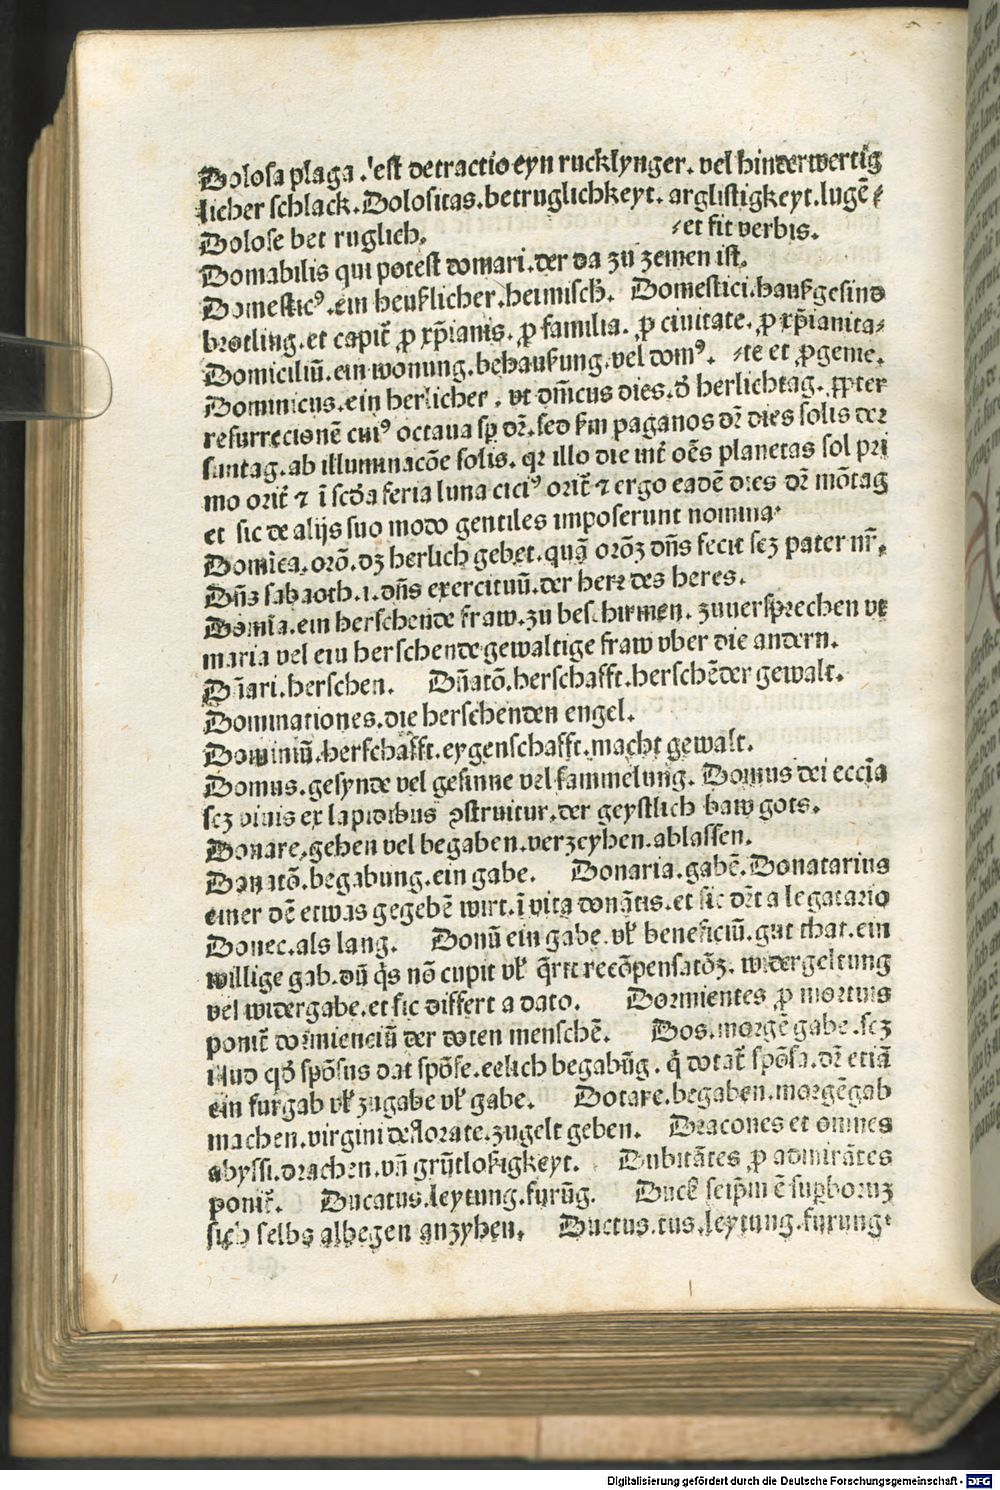 Dolosa plaga .'est detractio eyn rucklynger. vel hinderwertig
licher schlack. Dolositas. betruglichkeyt. arglistigkeyt. lugē⸗
Dolose bet ruglich. ⸗et fit verbis.
Domabilis qui potest domari. der da zu zemen ist.
Domesticꝰ. ein heußlicher. heimisch. Domestici. haußgesind
brotling. et capit̄ ꝓ xp̄ianis. ꝓ familia. ꝓ ciuitate. ꝓ xp̄ianita⸗
Domiciliū. ein wonung. behaußung. vel domꝰ. ⸗te et ꝓgenie.
Dominicus. ein herlicher. vt dn̄icus dies. d̄ herlichtag. ꝓpter
resurrecionē cuiꝰ octaua sꝑ dr̄. sed ẜm paganos dr̄ dies solis der
suntag. ab illuminacōe solis. qꝛ illo die int̄ oēs planetas sol pri
mo orit̄ ⁊ ī scd̄a feria luna ciciꝰ orit̄ ⁊ ergo eadē dies dr̄ mōtag
et sic de alijs suo modo gentiles imposerunt nomina.
Domīca. orō. dz herlich gebet. quā orōz dn̄s fecit scz pater nr̄.
Dn̄s sabaoth. i. dn̄s exercituū. der herr des heres.
Domīa. ein herschende fraw. zu beschirmen. zuuersprechen vt
maria vel ein herschende gewaltige fraw vber die andern.
Dn̄ari. herschen. Dn̄atō. herschafft. herschēder gewalt.
Dominationes. die herschenden engel.
Dominiū. herschafft. eygenschafft. macht gewalt.
Domus. gesynde vel gesinne vel sammelung. Domus dei eccīa
scz viuis ex lapidibus ꝯstruitur. der geystlich baw gots.
Donare. geben vel begaben. verzeyhen. ablassen.
Donatō. begabung. ein gabe. Donaria. gabē. Donatarius
einer dē etwas gegebē wirt. ī vita donātis. et sic dr̄t a legatario
Donec. als lang. Donū ein gabe. vl̄ beneficiū. gut that. ein
willige gab. dū q̄s nō cupit vl̄ q̄rit recōpensatōz. widergeltung
vel widergabe. et sic differt a dato. Dormientes ꝓ mortuis
ponit̄ dormienciū der doten menschē. Dos. morgē gabe. scz
illud qd̄ spōsus dat spōse. eelich begabūg. q̄ dotat̄ spōsa. dr̄ etiā
ein furgab vl̄ zugabe vl̄ gabe. Dotare. begaben. morgēgab
machen. virgini deflorate. zugelt geben. Dracones et omnes
abyssi. drachen. vn̄ grūtloßigkeyt. Dubitātes ꝓ admirātes
ponit̄. Ducatus. leytung. furūg. Duck seip̄m ē suꝑboruz
sich selbs albegen anzyhen. Ductus. tus. leytung. furung.
Digitalisierung gefördert durch die Deutsche Forschungsgemeinschaft - DFG